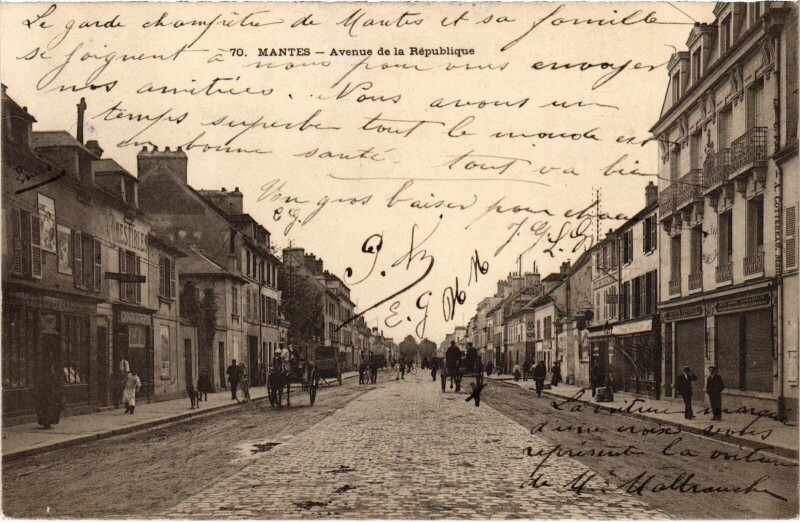 Le garde champêtre de Mantes et sa famille
se joignent à nous pour vous envoyer
70. MANTES — Avenue de la République
nos amitiés. Nous avons un
temps superbe tout le monde est
en bonne santé. tout va bien
Un gros baiser pour
E.G. J.G. L.G.
P.
E.G
COMESTIBLES
La voiture marquée
d'une croix
représente la voiture
de Mr Mallranche